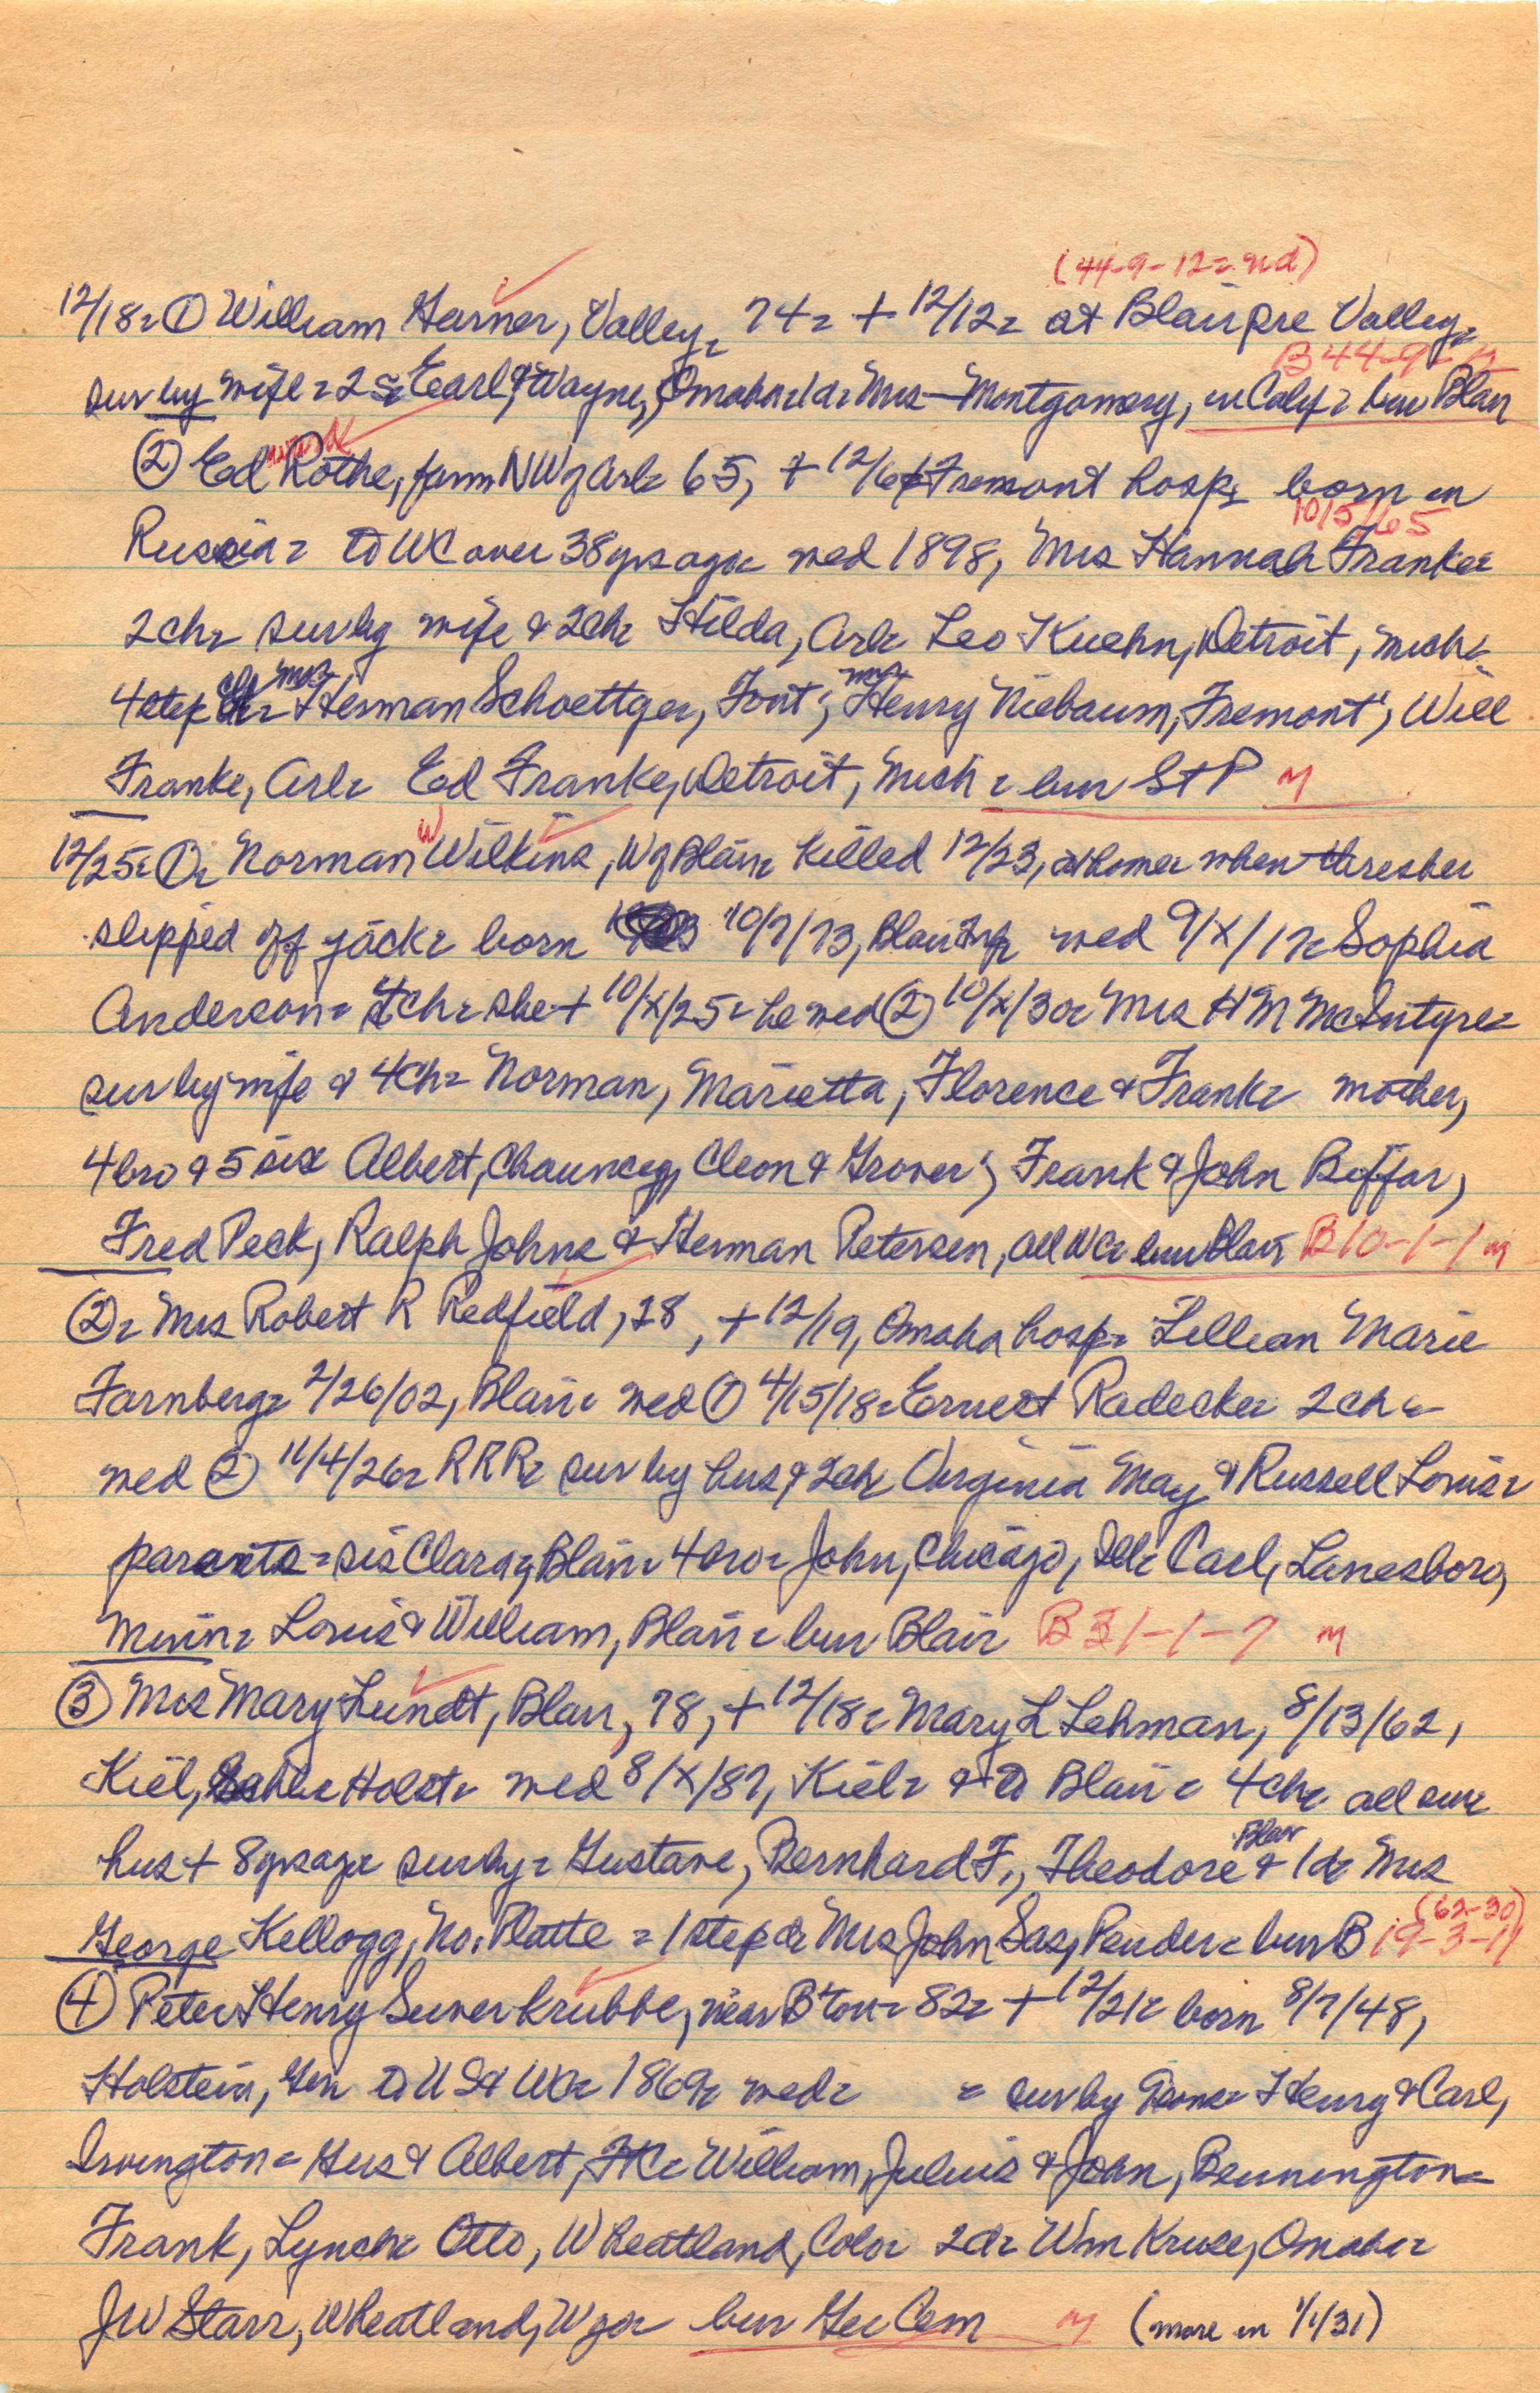 (44-9-12 = nd)
12/18 = ① William Harner, Valley = 74 = + 12/12 = at Blair pre Valley =
B 44-9-12
sur by wife = 2 s = Earl & Wayne, Omaha = 1 d = Mrs — Montgomery, in Calif = bur Blair
② Ed Rothe, farm NW of Arl = 65, + 12/6 Fremont hosp = born in
10/5/65
Russia = to WC over 38 yrs ago = med 1898, Mrs Hannah Franke =
2 ch = sur by wife & 2 ch = Hilda, Arl = Leo Kuehn, Detroit, Mich =
4 step ch = Mrs Herman Schoettger, Font; Mrs Henry Niebaum, Fremont; Will
Franke, Arl = Ed Franke, Detroit, Mich = bur St P M
12/25 = ① = Norman W Wilkins, W of Blair = killed 12/23, at home = when thresher
slipped off jack = born 10/7/73, Blair = med 9/X/17 = Sophia
Anderson = 4 ch = she + 10/X/25 = he med ② 10/X/30 = Mrs H M McIntyre =
sur by wife & 4 ch = Norman, Marietta, Florence & Frank = mother,
4 bro & 5 sis Albert, Chauncey, Cleon & Grover; Frank & John Biffar,
Fred Peck, Ralph Johns & Herman Petersen, all WC = bur Blair B 10-1-1 M
② = Mrs Robert R Redfield, 28, + 12/19, Omaha hosp = Lillian Marie
Farnberg = 2/26/02, Blair = med ① 4/15/18 = Ernest Radecker 2 ch =
med ② 11/4/26 = RRR = sur by hus, & 2 ch Virginia May & Russell Louis =
parents = sis Clara, Blair = 4 bro = John, Chicago, Ill = Carl, Lanesboro,
Minn = Louis & William, Blair = bur Blair B 31-1-7 M
③ Mrs Mary Lundt, Blair, 78, + 12/18 = Mary L Lehman, 8/13/62,
Kiel, Holst = med 8/X/87, Kiel = & to Blair = 4 ch = all sur =
hus + 8 yrs ago = sur by = Gustave, Bernhard F., Theodore Blair & 1 d = Mrs
(62-30)
George Kellogg, No. Platte = 1 step d = Mrs John Sas, Pender = bur B 19-3-11
④ Peter Henry Suverkrubbe, near B'ton = 82 = + 12/21 = born 8/7/48,
Holstein, Ger to US & WC = 1869 = med = = sur by sons = Henry & Carl,
Irvington = Gus & Albert, FK = William, Julius & John, Bennington =
Frank, Lynch = Otto, Wheatland, Colo = 2 d = Wm Kruse, Omaha =
JW Starr, Wheatland, Wyo = bur Ger Cem M (more in 1/1/31)